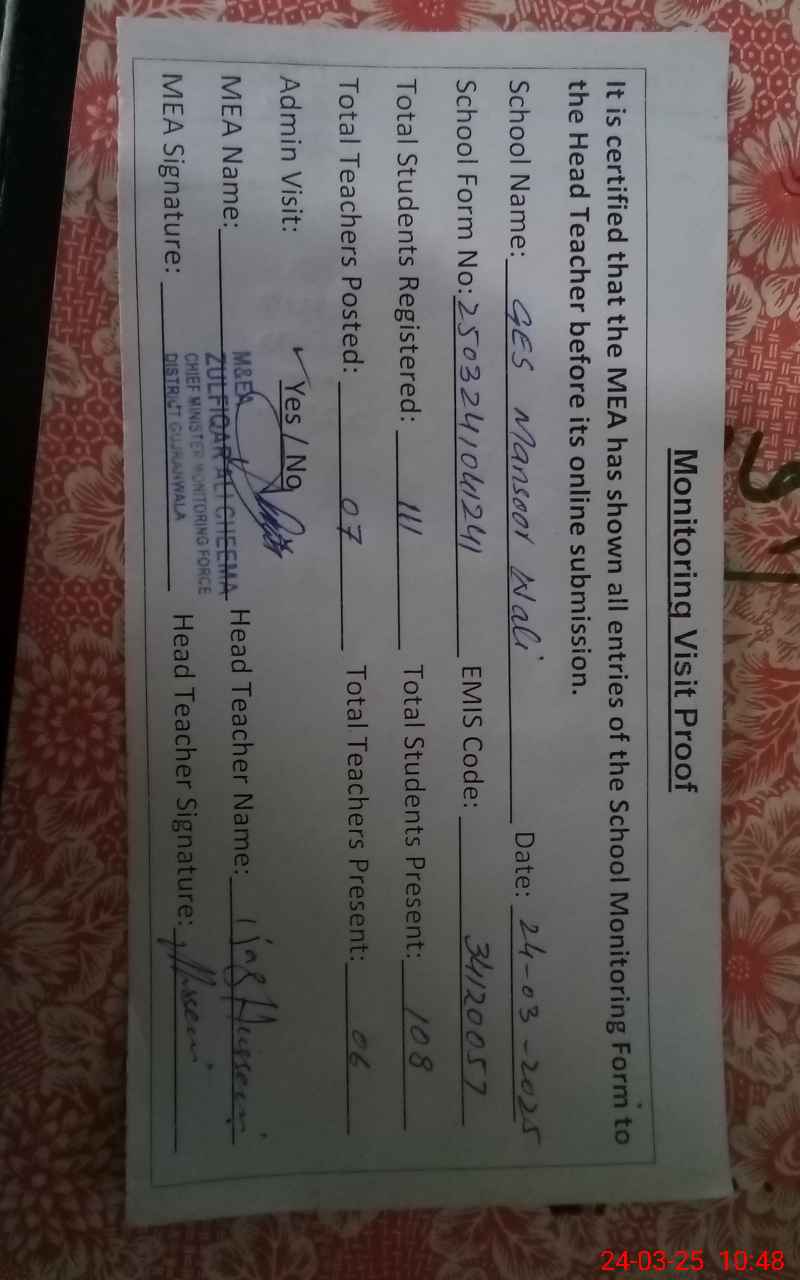 Monitoring Visit Proof
It is certified that the MEA has shown all entries of the School Monitoring Form to
the Head Teacher before its online submission.
School Name: GES Mansoor Wali Date: 24-03-2025
School Form No: 2503241041241 EMIS Code: 34120057
Total Students Registered: 111 Total Students Present: 108
Total Teachers Posted: 07 Total Teachers Present: 06
Admin Visit: ✓ Yes / No
MEA Name: Head Teacher Name: Ijaz Hussain
MEA Signature: Head Teacher Signature: Hussain
M&EA
ZULFIQAR ALI CHEEMA
CHIEF MINISTER MONITORING FORCE
DISTRICT GUJRANWALA
24-03-25 10:48